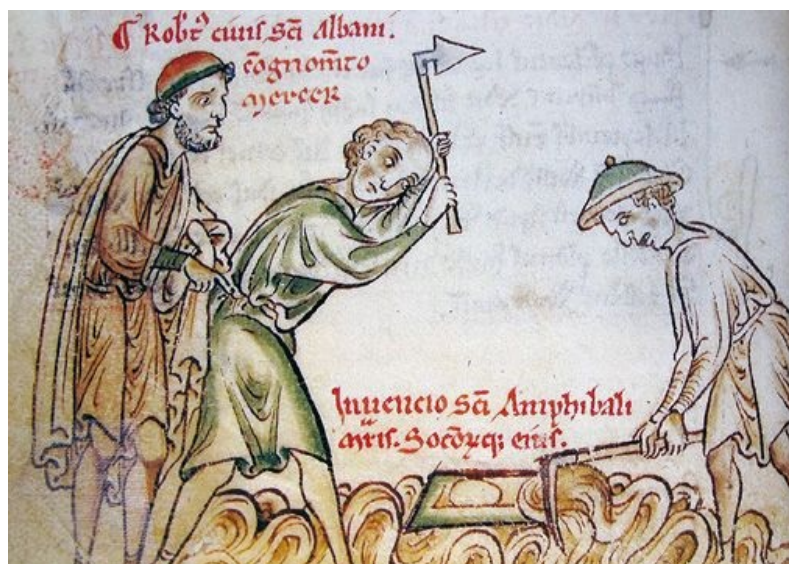 ¶ Robt᷒ ciuis sc̄i Albani.
cōgnom̄to
mercer
Inuencio sc̄i Amphibali
mr̄is. Socior̄q; eius.